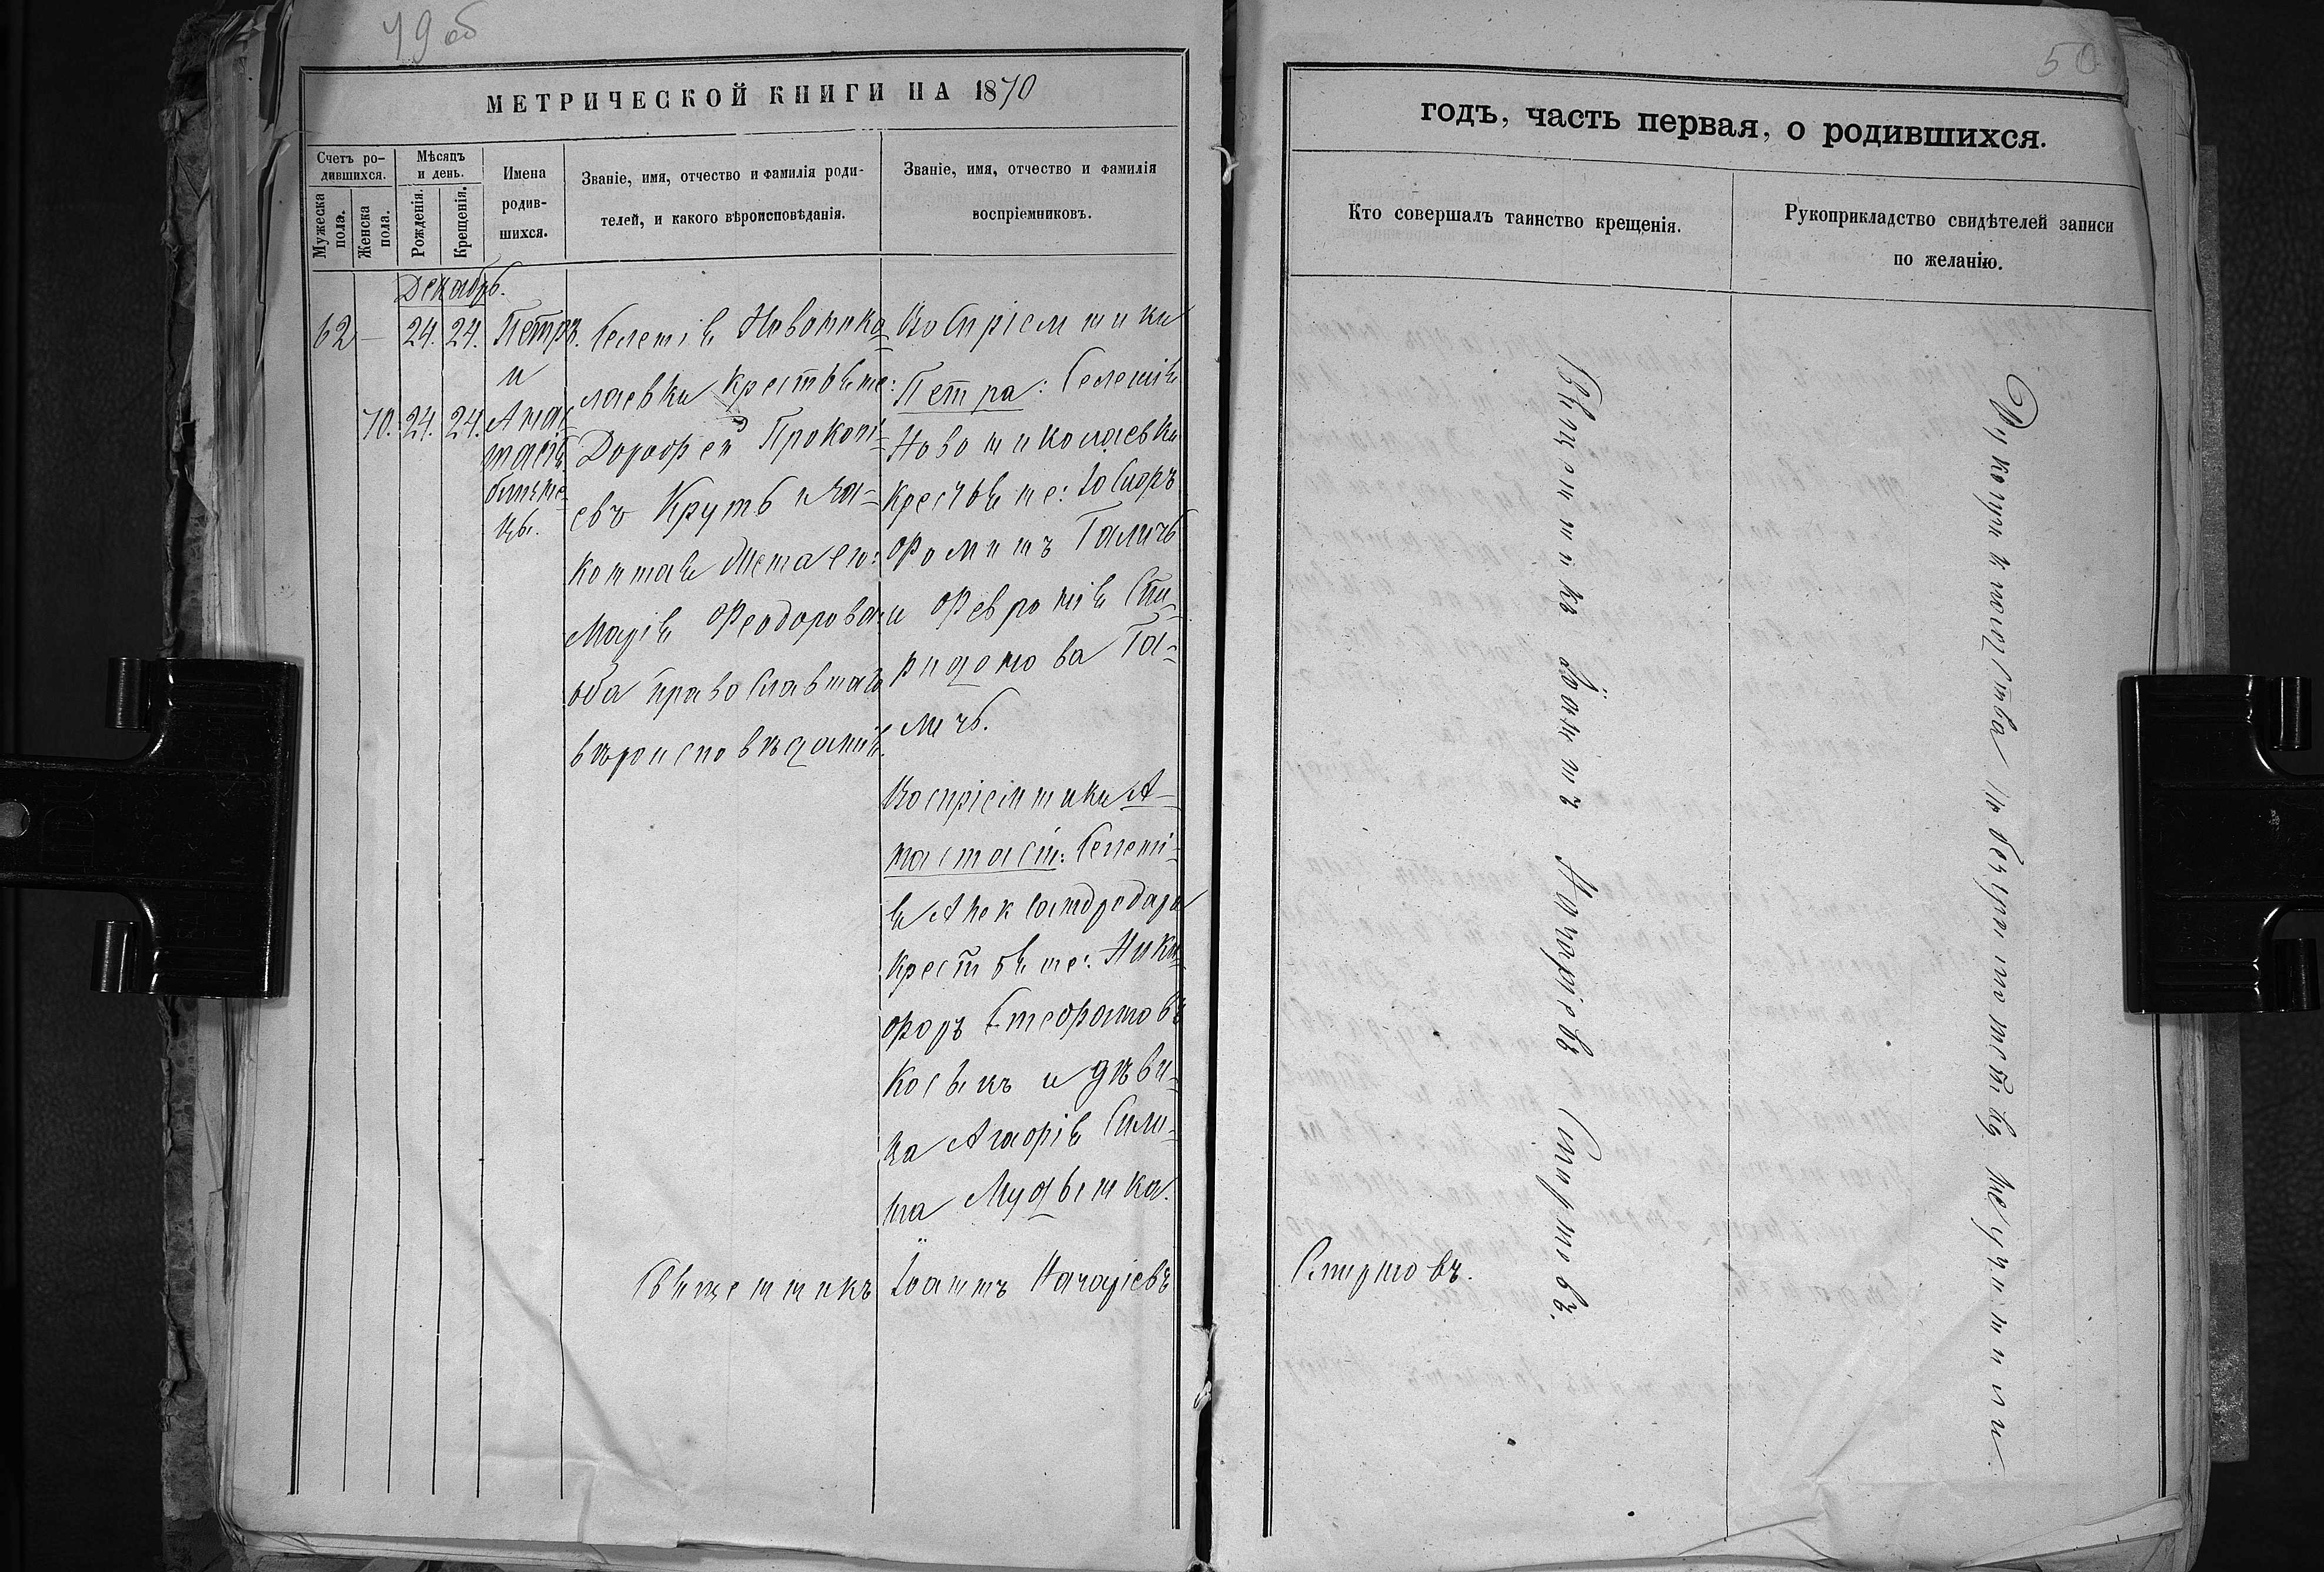 49 об
МЕТРИЧЕСКОЙ КНИГИ НА 1870
Счетъ ро-
дившихся.
Мужеска
пола.
Женска
пола.
Мѣсяцъ
и день.
Рожденія.
Крещенія.
Имена
родив-
шихся.
Званіе, имя, отчество и фамилія роди-
телей, и какого вѣроисповѣданія.
Званіе, имя, отчество и фамилія
воспріемниковъ.
Декабрь.
62 — 24. 24. Петръ.
и
70. 24. 24. Анас
тасія
близне-
цы.
Селенія Новонико
лаевки крестьяне:
Дорофей Прокопі-
евъ Круть и за-
конная жена его:
Марія Феодорова
оба православнаго
вѣроисповѣданія.
Воспріемники
Петра: Селенія
Новониколаевки
крестьяне:
Галичь
и Февронія Спи-
ридонова Га-
личь.
Воспріемники А-
настасіи: Селені-
я Александродара
крестьяне: Ники-
форъ Стефановъ
Косякъ и дѣви-
ца Агафія
на
Священникъ Іоаннъ Назаріевъ
50
годъ, часть первая, о родившихся.
Кто совершалъ таинство крещенія.
Рукоприкладство свидѣтелей записи
по желанію.
Священникъ Іоаннъ Назаріевъ Смирновъ.
Рукоприкладства по безграмотству не учинили.
Смирновъ.